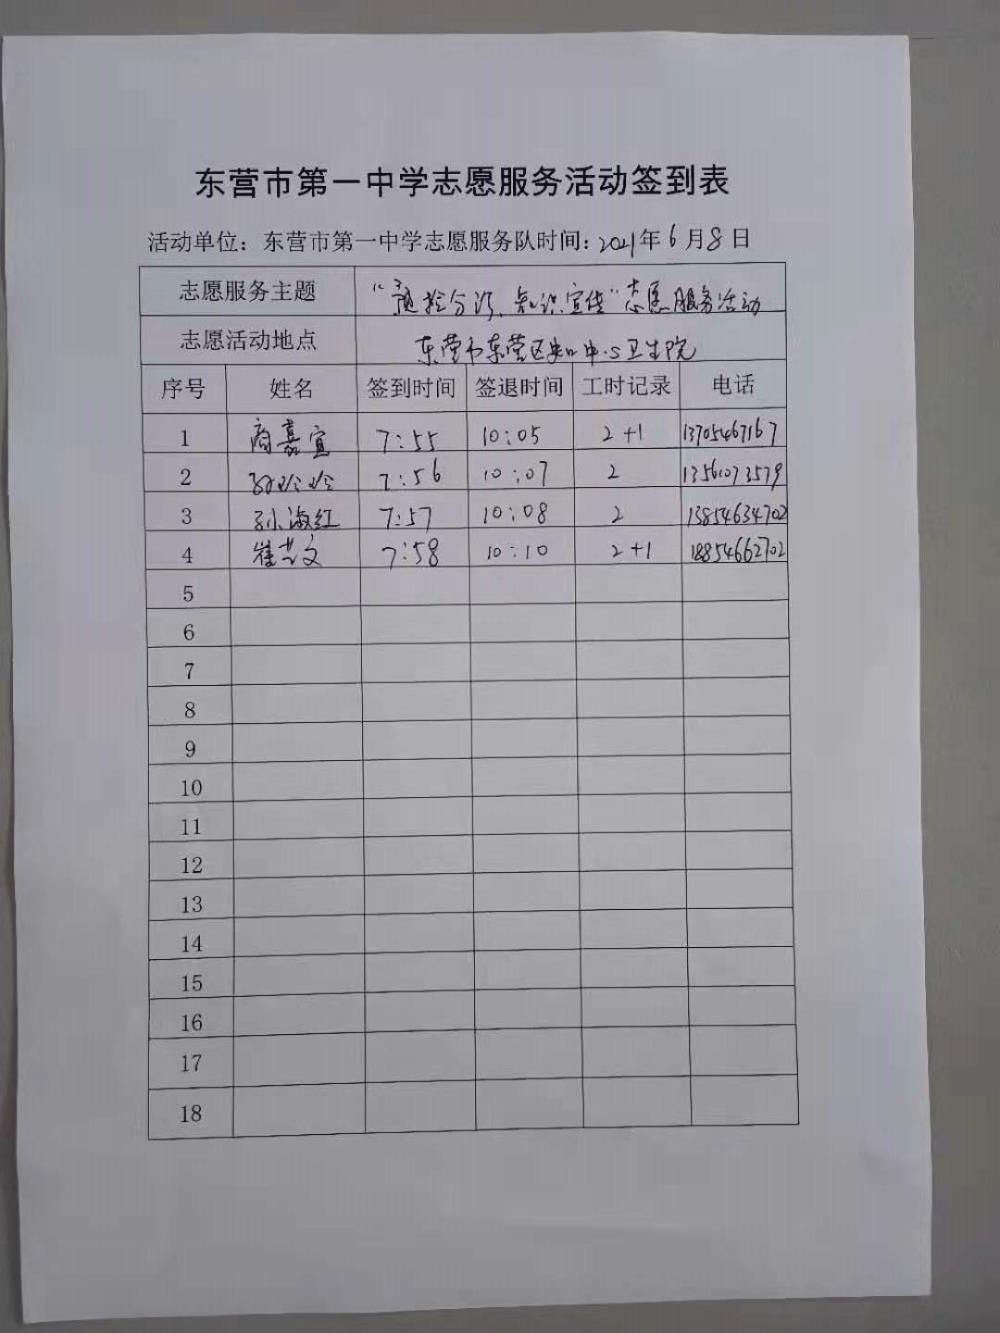 东营市第一中学志愿服务活动签到表
活动单位：东营市第一中学志愿服务队时间：2021年6月8日
志愿服务主题 “预检分诊、知识宣传”志愿服务活动
志愿活动地点 东营市东营区史口中心卫生院
序号 姓名 签到时间 签退时间 工时记录 电话
1 商嘉宜 7:55 10:05 2+1 13705467167
2 孙玲玲 7:56 10:07 2 13561073579
3 孙淑红 7:57 10:08 2 13854634702
4 崔艺文 7:58 10:10 2+1 18854662702
5
6
7
8
9
10
11
12
13
14
15
16
17
18